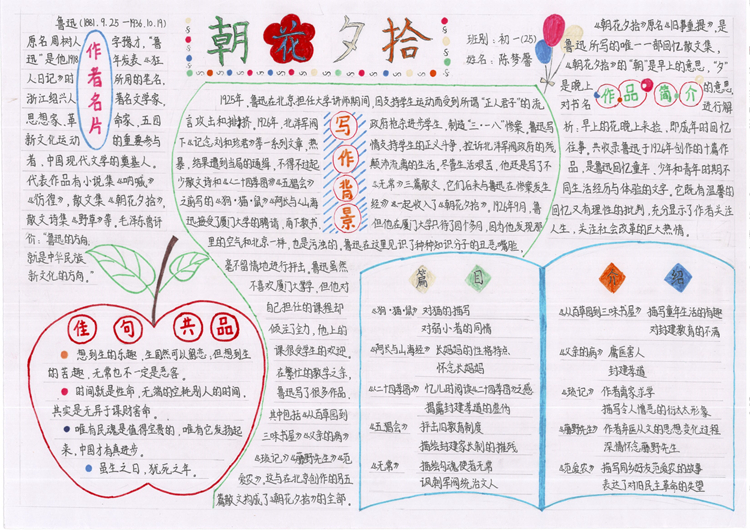 朝花夕拾
班别：初一(25)
姓名：陈梦馨
鲁迅(1881.9.25—1936.10.19)
原名周树人，字豫才，“鲁
迅”是他1918年发表《狂
人日记》时所用的笔名，
浙江绍兴人，著名文学家、
思想家、革命家、五四
新文化运动的重要参与
者，中国现代文学的奠基人。
代表作品有小说集《呐喊》
《彷徨》，散文集《朝花夕拾》，
散文诗集《野草》等，毛泽东曾评
价：“鲁迅的方向，
就是中华民族
新文化的方向。”
作者名片
1925年，鲁迅在北京担任大学讲师期间，因支持学生运动而受到所谓“正人君子”的流
言攻击和排挤。1926年，北洋军阀政府枪杀进步学生，制造“三·一八”惨案，鲁迅写
下《记念刘和珍君》等一系列文章，热情支持学生的正义斗争，控诉北洋军阀政府的残
暴，结果遭到当局的通缉，不得不过起颠沛流离的生活。尽管生活艰苦，他还是写了不
少散文诗和《二十四孝图》《五猖会》《无常》三篇散文，它们后来与鲁迅在惨案发生
之前写的《狗·猫·鼠》《阿长与山海经》一起收入了《朝花夕拾》。1926年9月，鲁
迅接受了厦门大学的聘请，南下教书，但他在厦门大学只待了四个月，因为他发现那
里的空气和北京一样，也是污浊的，鲁迅在这里见识了种种知识分子的丑恶嘴脸，
毫不留情地进行抨击，鲁迅虽然
不喜欢厦门大学，但他对
自己担任的课程却
倾注全力，他上的
课很受学生的欢迎。
在繁忙的教学之余，
鲁迅写了很多作品，
其中包括《从百草园到
三味书屋》《父亲的病》
《琐记》《藤野先生》《范
爱农》，这与在北京创作的另五
篇散文构成了《朝花夕拾》的全部。
写作背景
《朝花夕拾》原名《旧事重提》，是
鲁迅所写的唯一一部回忆散文集，
《朝花夕拾》的“朝”是早上的意思，“夕”
是晚上的意思，
对书名进行解
析，早上的花晚上来捡，即成年的回忆
往事，共收录鲁迅于1926年创作的十篇作
品，是鲁迅回忆童年、少年和青年时期不
同生活经历与体验的文字，它既有温馨的
回忆又有理性的批判，充分显示了作者关注
人生，关注社会改革的巨大热情。
作品简介
佳句共品
想到生的乐趣，生固然可以留恋；但想到生
的苦趣，无常也不一定是恶客。
时间就是性命，无端的空耗别人的时间，
其实是无异于谋财害命。
唯有民魂是值得宝贵的，唯有它发扬起
来，中国才有真进步。
虽生之日，犹死之年。
篇目
《狗·猫·鼠》 对猫的描写
对弱小者的同情
《阿长与山海经》 长妈妈的性格特点
怀念长妈妈
《二十四孝图》 忆儿时阅读《二十四孝图》之感
揭露封建孝道的虚伪
《五猖会》 抨击旧教育制度
描绘封建家长制的摧残
《无常》 描绘勾魂使者无常
讽刺军阀统治文人
介绍
《从百草园到三味书屋》 描写童年生活的有趣
对封建教育的不满
《父亲的病》 庸医害人
封建孝道
《琐记》 作者离家求学
描写令人憎恶的衍太太形象
《藤野先生》 作者弃医从文的思想变化过程
深情怀念藤野先生
《范爱农》 描写同乡好友范爱农的故事
表达了对旧民主革命的失望